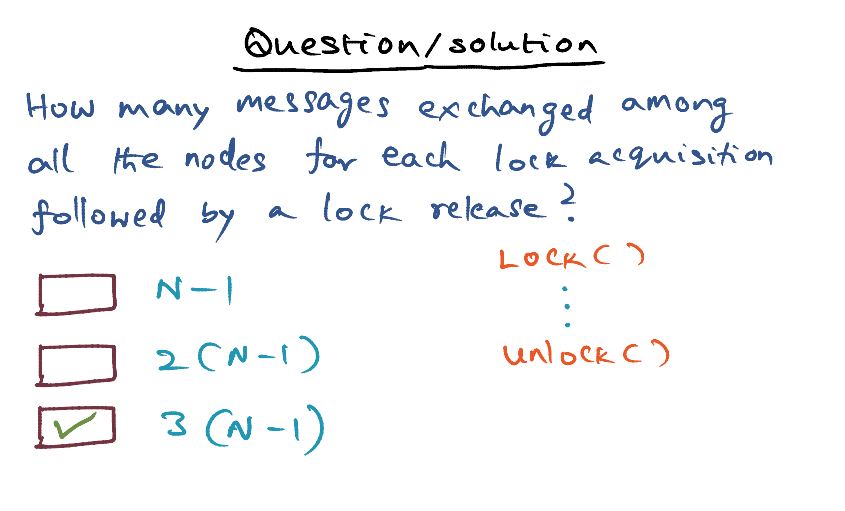 Question/solution
How many messages exchanged among
all the nodes for each lock acquisition
followed by a lock release?
LOCK()
N-1
2(N-1)
UNLOCK()
3(N-1)